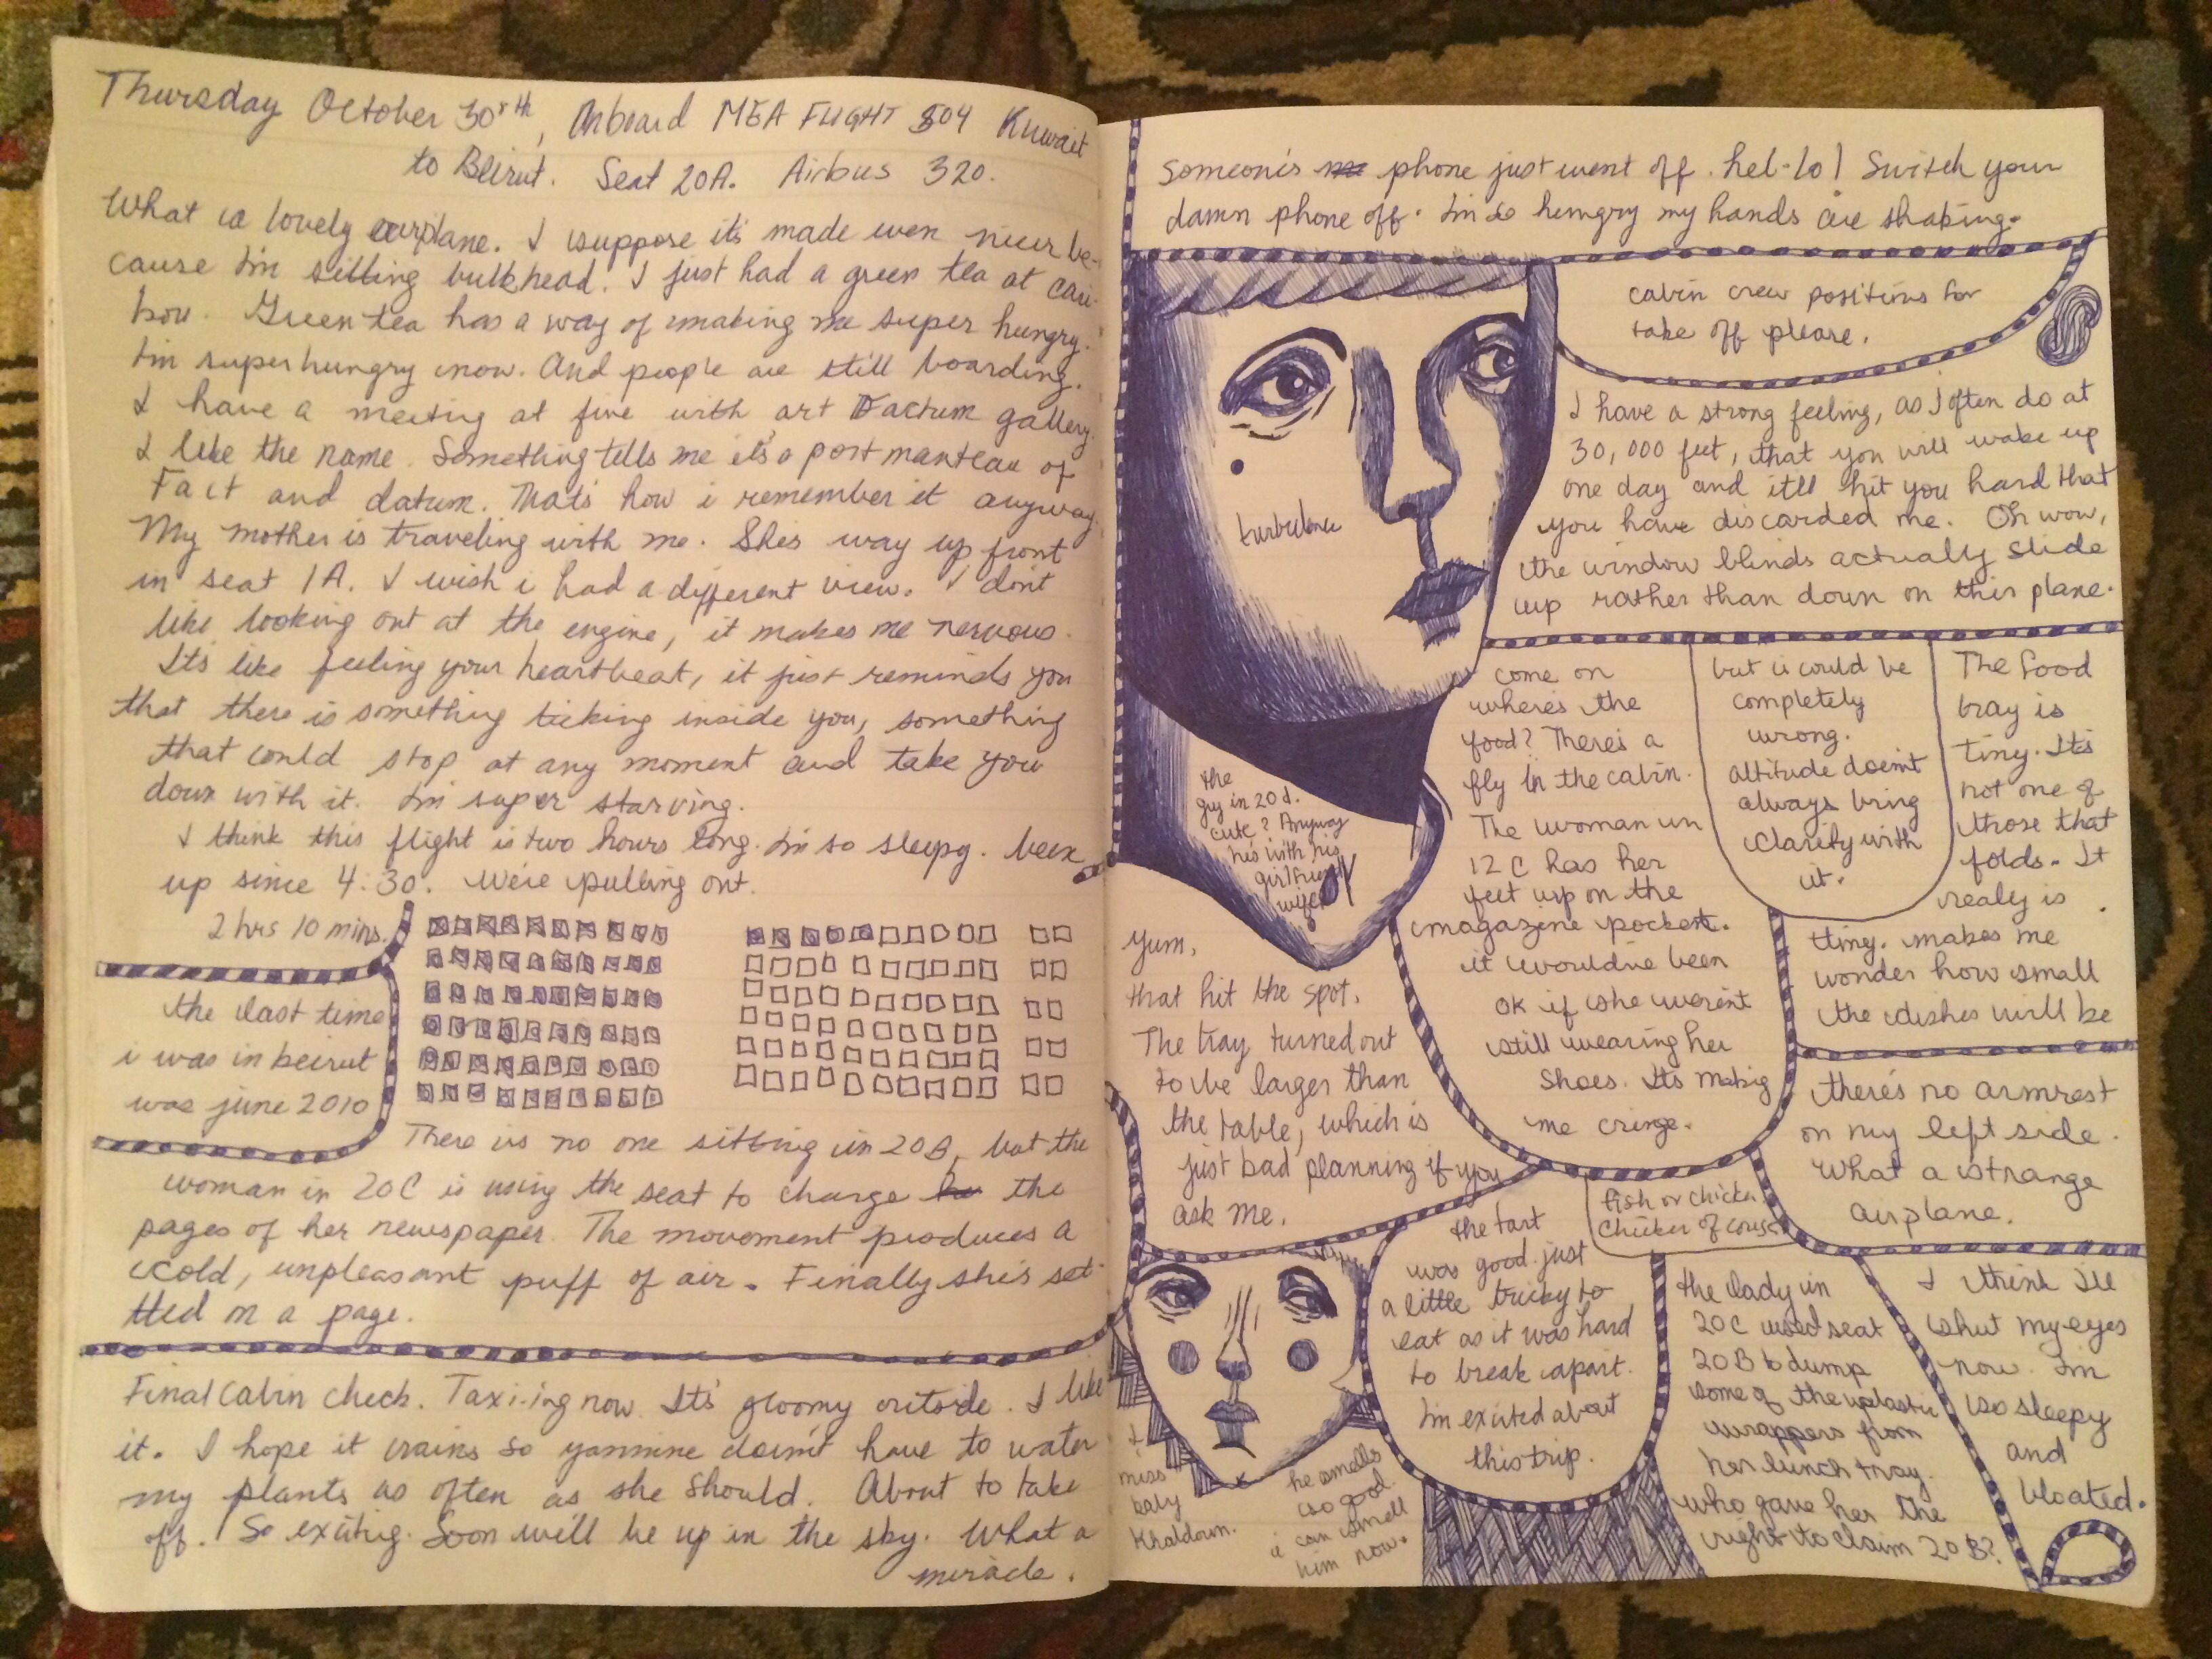 Thursday October 30th, Onboard MEA FLIGHT 504 Kuwait
to Beirut. Seat 20A. Airbus 320.
What a lovely airplane. I suppose it's made even nicer be-
cause I'm sitting bulkhead. I just had a green tea at cari-
bou. Green tea has a way of making me super hungry.
I'm super hungry now. And people are still boarding.
I have a meeting at five with art Factum gallery.
I like the name. Something tells me it's a portmanteau of
Fact and datum. That's how i remember it anyway.
My mother is traveling with me. She's way up front
in seat 1A. I wish i had a different view. I don't
like looking out at the engine, it makes me nervous.
It's like feeling your heartbeat, it just reminds you
that there is something ticking inside you, something
that could stop at any moment and take you
down with it. I'm super starving.
I think this flight is two hours long. I'm so sleepy. been
up since 4:30. We're pulling out.
2 hrs 10 mins.
the last time
i was in beirut
was june 2010
There is no one sitting in 20B, but the
woman in 20C is using the seat to change the
pages of her newspaper. The movement produces a
cold, unpleasant puff of air. Finally she's set-
tled on a page.
Final Cabin Check. Taxi-ing now. It's gloomy outside. I like
it. I hope it rains so yasmine doesn't have to water
my plants as often as she should. About to take
off. So exciting. Soon we'll be up in the sky. What a
miracle.
Someone's phone just went off. hel-lo! Switch your
damn phone off. I'm so hungry my hands are shaking.
cabin crew positions for
take off please.
I have a strong feeling, as I often do at
30,000 feet, that you will wake up
one day and it'll hit you hard that
you have discarded me. Oh wow,
the window blinds actually slide
up rather than down on this plane.
turbulence
come on
where's the
food? There's a
fly in the cabin.
The woman in
12C has her
feet up on the
magazine pocket.
it would've been
ok if she weren't
still wearing her
shoes. Its making
me cringe.
but i could be
completely
wrong.
altitude doesn't
always bring
clarity with
it.
The food
tray is
tiny. It's
not one of
those that
folds. It
realy is
tiny. makes me
wonder how small
the dishes will be
the
guy in 20d.
cute? Anyway
he's with his
girlfriend/
wife
there's no armrest
on my left side.
What a strange
airplane.
fish or chicken
Chicken of course
Yum,
that hit the spot.
The tray turned out
to be larger than
the table, which is
just bad planning if you
ask me.
the tart
was good. just
a little tricky to
eat as it was hard
to break apart.
I'm excited about
this trip.
the lady in
20C used seat
20B to dump
some of the plastic
wrappers from
her lunch tray.
who gave her the
right to claim 20B?
I think I'll
shut my eyes
now. I'm
so sleepy
and
bloated.
I
miss
baby
Khaldoun.
he smells
so good.
i can smell
him now.